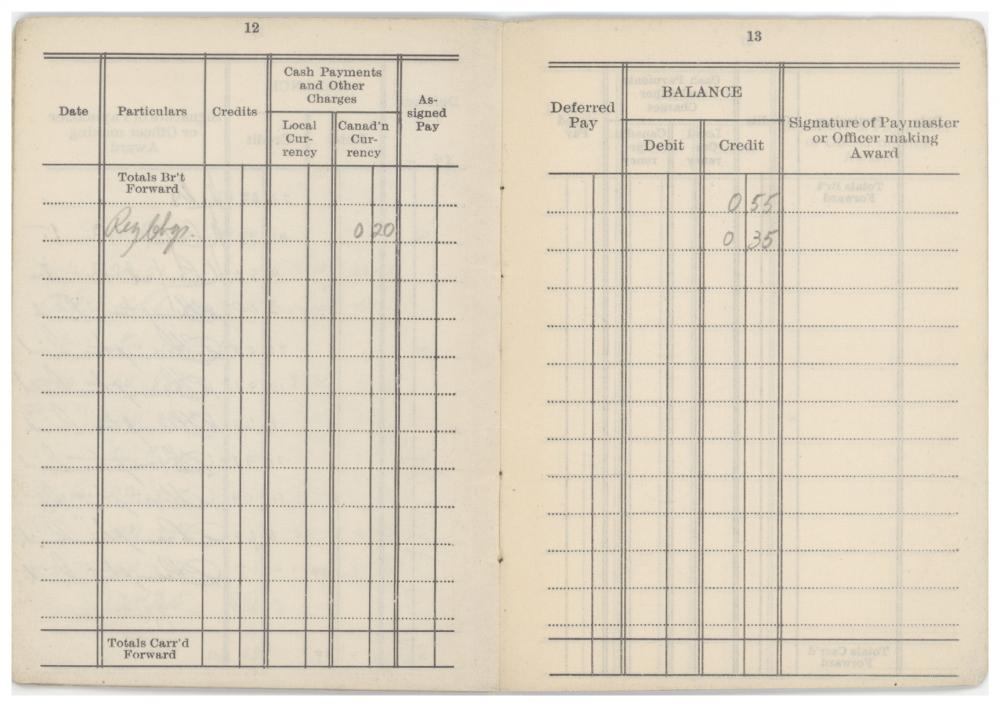 12
Date
Particulars
Credits
Cash Payments
and Other
Charges
Local
Cur-
rency
Canad'n
Cur-
rency
As-
signed
Pay
Totals Br't
Forward
Reg
0 20
Totals Carr'd
Forward
13
Deferred
Pay
BALANCE
Debit
Credit
Signature of Paymaster
or Officer making
Award
0 55
0 35